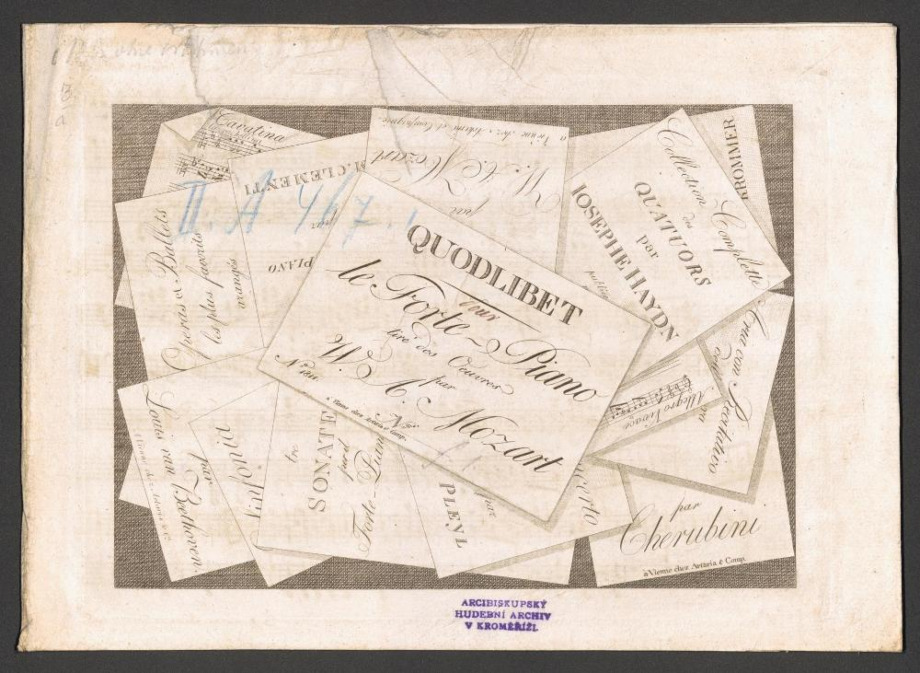 Cavatina
M. CLEMENTI
par
PIANO
II. A 467.
a Vienne chez Artaria et Compagnie.
W. A. Mozart
par
Collection Complette
des
QUATUORS
par
IOSEPHE HAYDN
KROMMER
Operas et Ballets
les plus favorits
arangés
QUODLIBET
pour
le Forte-Piano
tiré des Oeuvres
par
W. A. Mozart
a Vienne chez Artaria et Comp.
Aria con Recitativo
Allegro Vivace
Louis van Beethoven
par
Sinfonia
SONATE
pour
Forte-Piano
PLEYL
par
Cherubini
à Vienne chez Artaria & Comp.
ARCIBISKUPSKÝ
HUDEBNÍ ARCHIV
V KROMĚŘÍŽI.